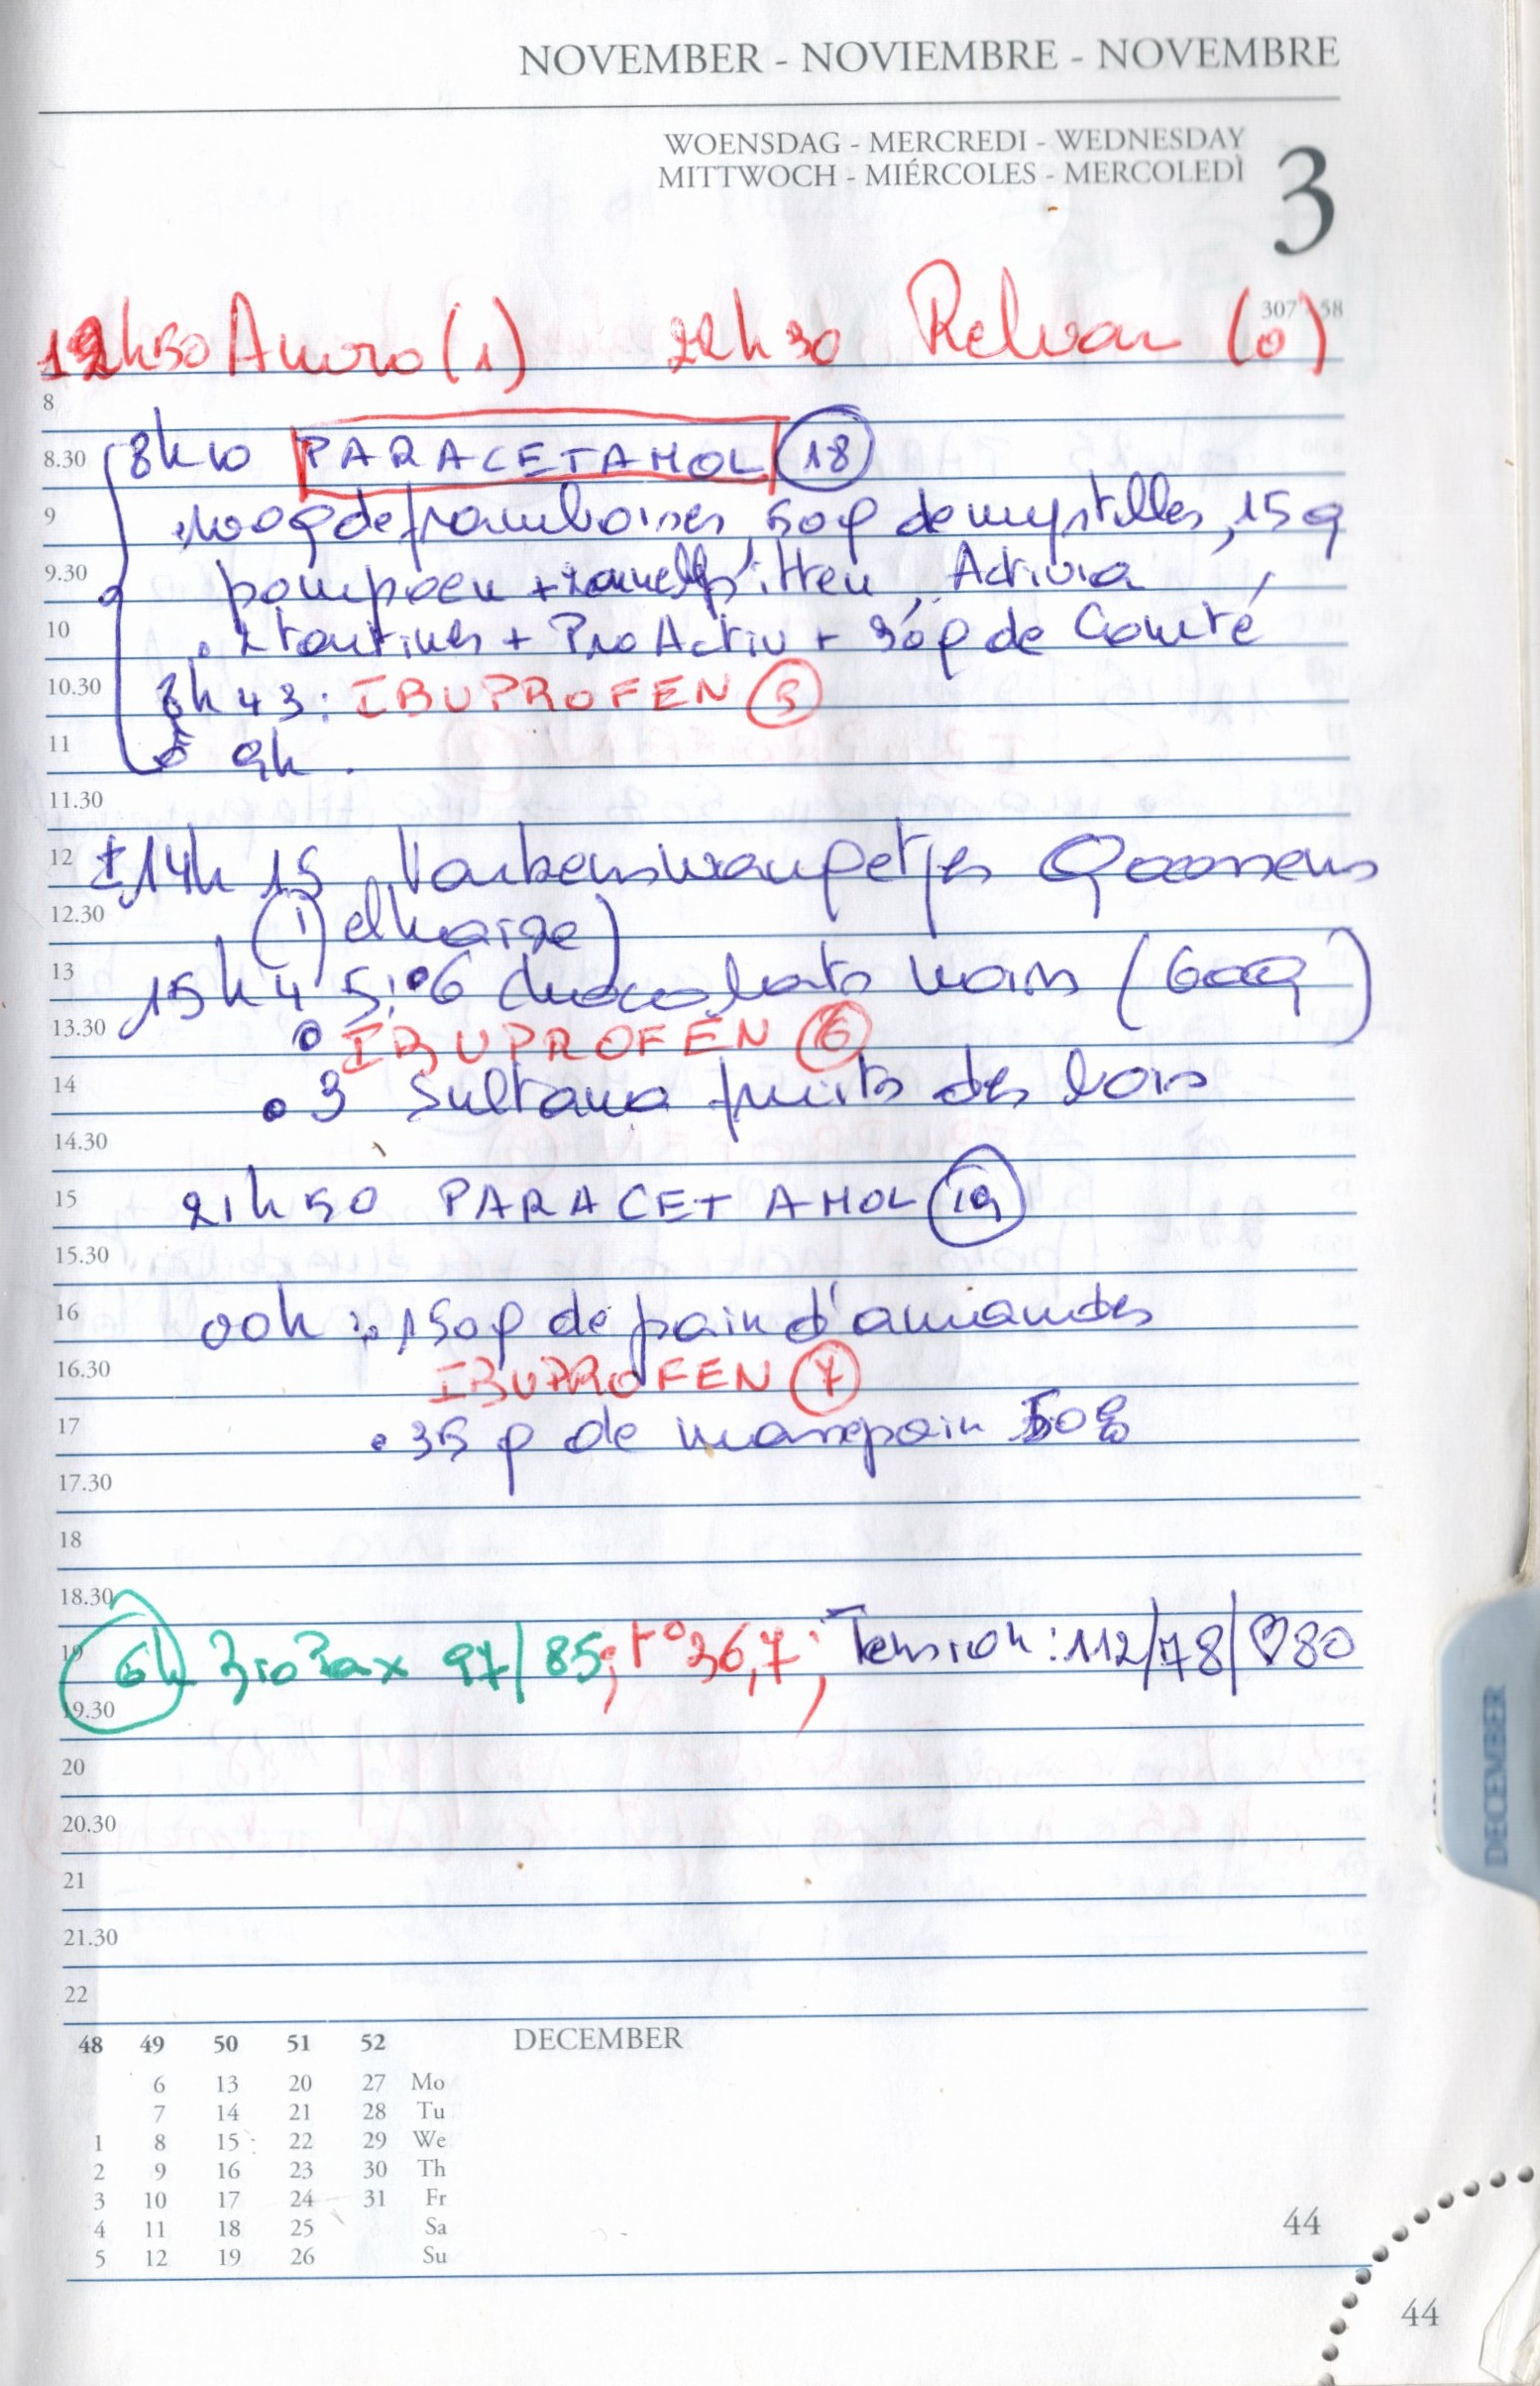 NOVEMBER - NOVIEMBRE - NOVEMBRE
WOENSDAG - MERCREDI - WEDNESDAY
MITTWOCH - MIÉRCOLES - MERCOLEDÌ
3
307 58
h50 Anoro (1) 22h30 Relvar (0)
8
8.30 8h10 PARACETAMOL 18
9 100g de framboises, 50g de myrtilles, 15g
9.30 pompoen + , Activia
10 tartines + ProActiv + 30g de Comté
10.30 8h43: IBUPROFEN 5
11 9h.
11.30
12 ±14h15 Varkenswangetjes Goossens
12.30 (elhaize)
13 15h45: 6 chocolats noirs (60g)
13.30 IBUPROFEN 6
14 3 Sultana fruits des bois
14.30
15 21h50 PARACETAMOL 19
15.30
16 00h : 150g de pain d'amandes
16.30 IBUPROFEN 7
17 35g de massepain 50g
17.30
18
18.30
19 6h 97/85; t° 36,7; Tension: 112/78/♡80
19.30
20
20.30
21
21.30
22
48 49 50 51 52 DECEMBER
6 13 20 27 Mo
7 14 21 28 Tu
1 8 15 22 29 We
2 9 16 23 30 Th
3 10 17 24 31 Fr
4 11 18 25 Sa
5 12 19 26 Su
44
44
DECEMBER